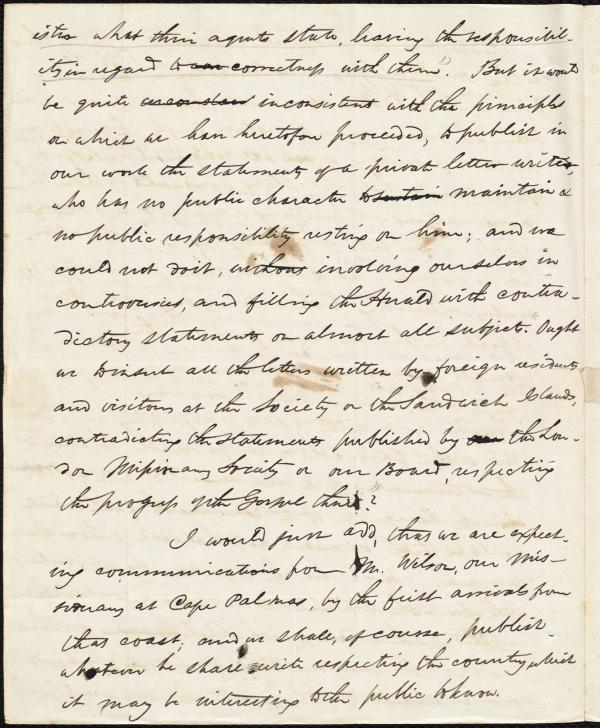 what their agents state, leaving the responsibil-
ity in regard to our correctness with them". But it would
be quite inconsistent with the principles
on which we have heretofore proceeded, to publish in
our work the statements of a private letter writer,
who has no public character to sustain maintain &
no public responsibility resting on him; and we
could not do it, without involving ourselves in
controversies, and filling the Herald with contra-
dictory statements on almost all subjects. "Ought
we to insert all the letters written by foreign residents
and visitors at the Society or the Sandwich Islands,
contradicting the statements published by our the Lon-
don Missionary Society or our Board, respecting
the progress of the Gospel there"?
I would just add, that we are expect-
ing communications from Mr. Wilson, our mis-
sionary at Cape Palmas, by the first arrivals from
that coast; and we shall, of course, publish
whatever he shall write respecting the country which
it may be interesting to the public to know.